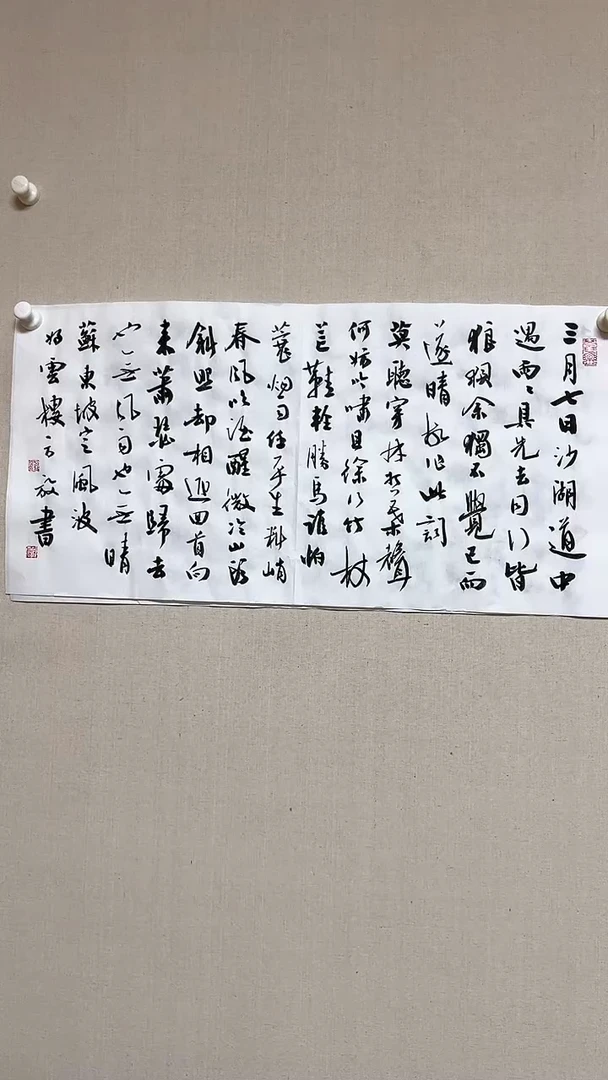 三月七日沙湖道中
遇雨〻具先去同行皆
狼狽余獨不覺已而
遂晴故作此詞
莫聽穿林打葉聲
何妨吟嘯且徐行竹杖
芒鞵輕勝馬誰怕
蓑烟雨任平生料峭
春風吹酒醒微冷山頭
斜照却相迎回首向
來蕭瑟處歸去
也無風雨也無晴
蘇東坡定風波
雲樓方放書